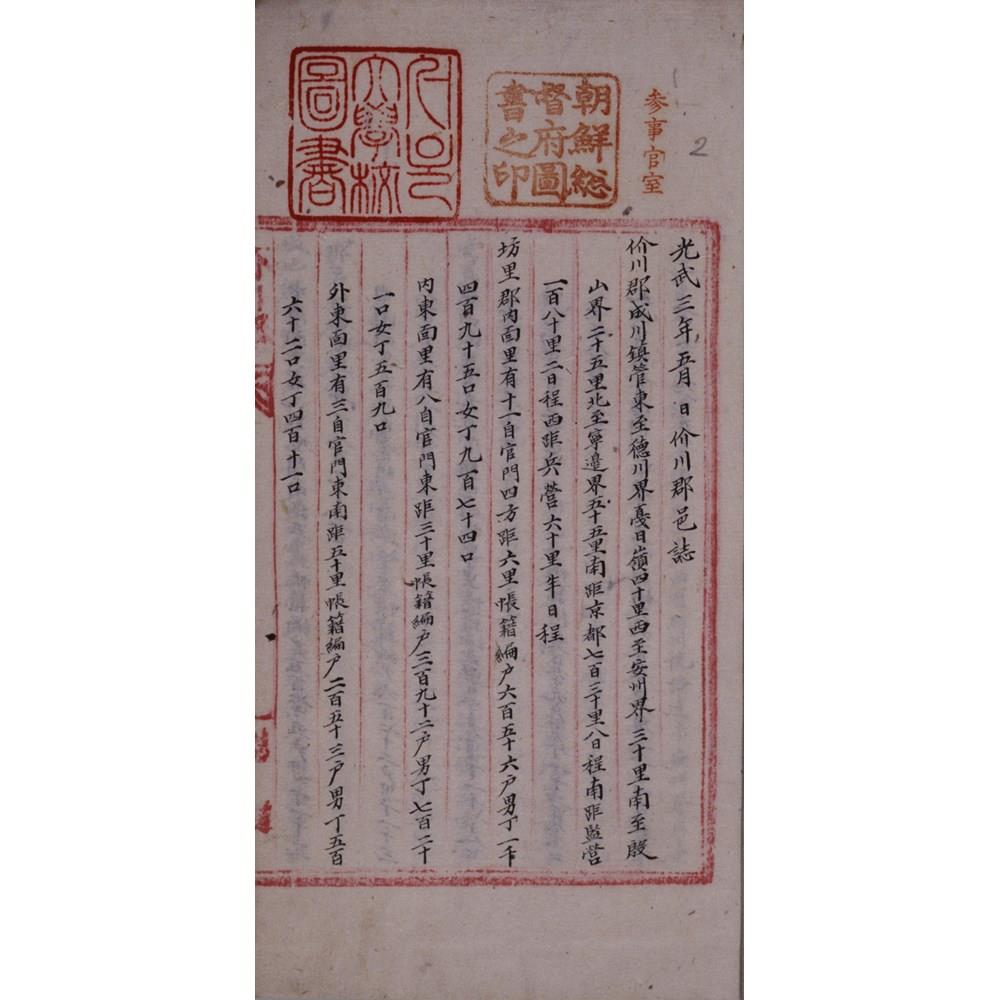 参事官室
2
朝鮮総
督府圖
書之印
서울
大學校
圖書
光武三年五月 日价川郡邑誌
价川郡成川鎮管東至德川界憂日嶺四十里西至安州界三十里南至殷
山界二十五里北至寧邊界五十五里南距京都七百三十里八日程南距監營
一百八十里二日程西距兵營六十里半日程
坊里郡內面里有十一自官門四方距六里帳籍編戶六百五十六戶男丁一千
四百九十五口女丁九百七十四口
內東面里有八自官門東距三十里帳籍編戶三百九十二戶男丁七百二十
一口女丁五百九口
外東面里有三自官門東南距五十里帳籍編戶二百五十三戶男丁五百
六十二口女丁四百十一口